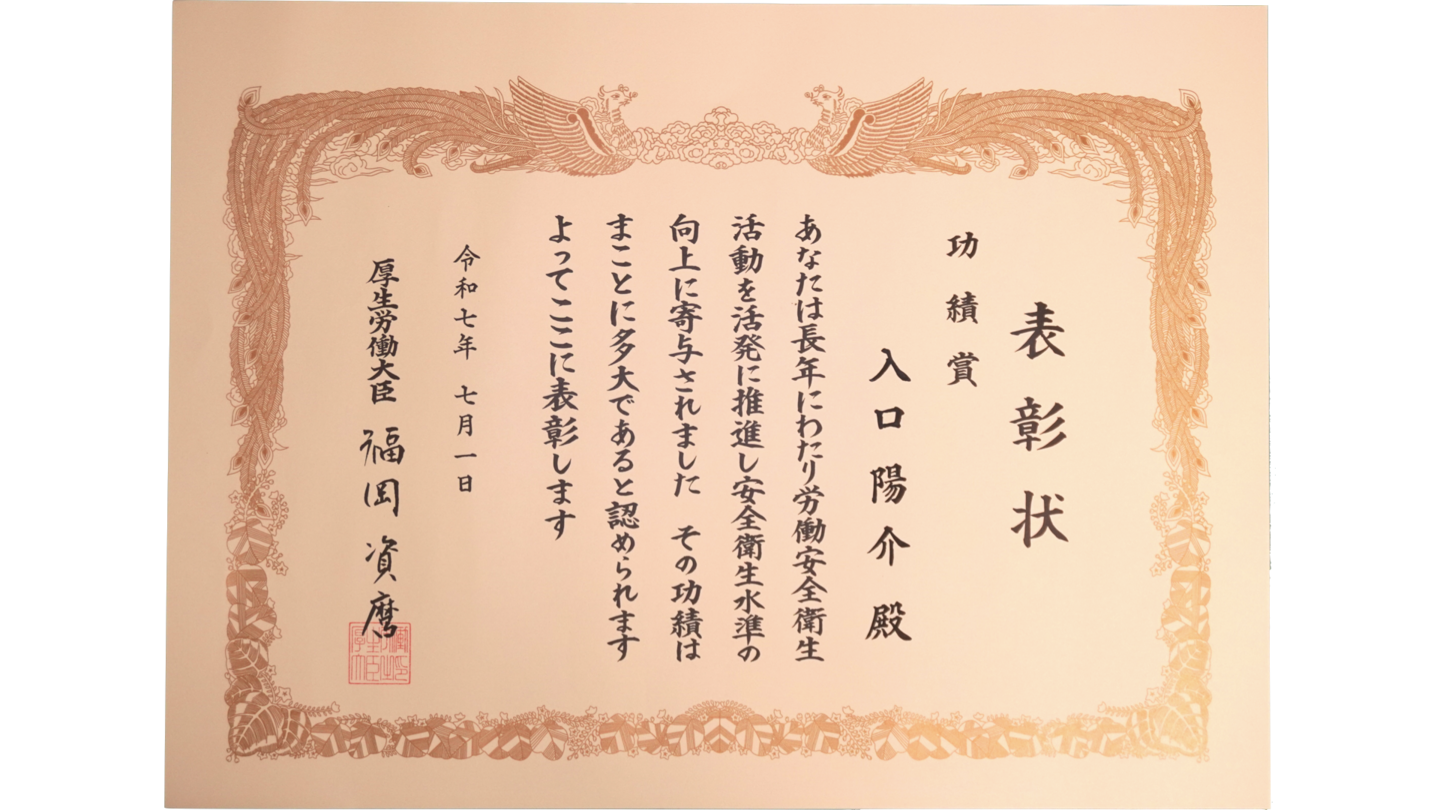 表彰状
功績賞
入口陽介殿
あなたは長年にわたり労働安全衛生
活動を活発に推進し安全衛生水準の
向上に寄与されました その功績は
まことに多大であると認められます
よってここに表彰します
令和七年 七月一日
厚生労働大臣 福岡資麿